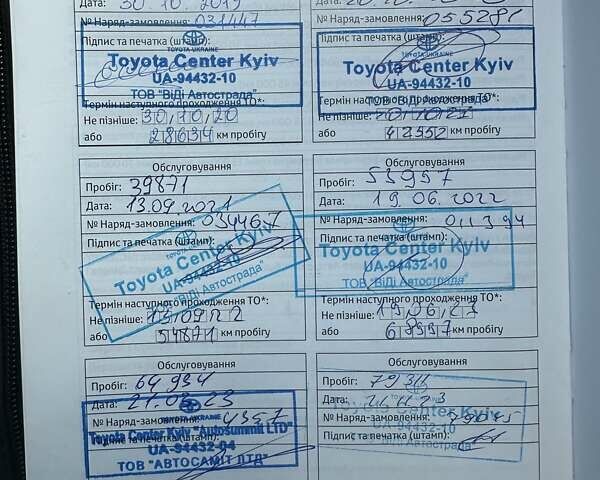 Дата: 30.10.2019
№ Наряд-замовлення: 031447
Підпис та печатка (штамп):
TOYOTA UKRAINE
Toyota Center Kyiv
UA-94432-10
ТОВ "ВіДі Автострада"
Термін наступного проходження ТО*:
Не пізніше: 30.10.20
або 28634 км пробігу
Дата:
№ Наряд-замовлення: 055281
Підпис та печатка (штамп):
Toyota Center Kyiv
UA-94432-10
ТОВ "ВіДі Автострада"
Термін наступного проходження ТО*:
Не пізніше: 20.10.21
або 42552 км пробігу
Обслуговування
Пробіг: 39871
Дата: 13.09.2021
№ Наряд-замовлення: 034467
Підпис та печатка (штамп):
Toyota Center Kyiv
UA-94432-10
ТОВ "ВіДі Автострада"
Термін наступного проходження ТО*:
Не пізніше: 13.09.22
або 54871 км пробігу
Обслуговування
Пробіг: 53957
Дата: 19.06.2022
№ Наряд-замовлення: 011394
Підпис та печатка (штамп):
Toyota Center Kyiv
UA-94432-10
ТОВ "ВіДі Автострада"
Термін наступного проходження ТО*:
Не пізніше: 19.06.
або км пробігу
Обслуговування
Пробіг: 64934
Дата: 21.03.23
№ Наряд-замовлення: 4357
Підпис та печатка (штамп):
TOYOTA UKRAINE
Toyota Center Kyiv "Autosummit LTD"
UA-94432-04
ТОВ "АВТОСАМІТ ЛТД"
Обслуговування
Пробіг:
Дата:
№ Наряд-замовлення:
Підпис та печатка (штамп):
Toyota Center Kyiv
UA-94432-10
ТОВ "ВіДі Автострада"